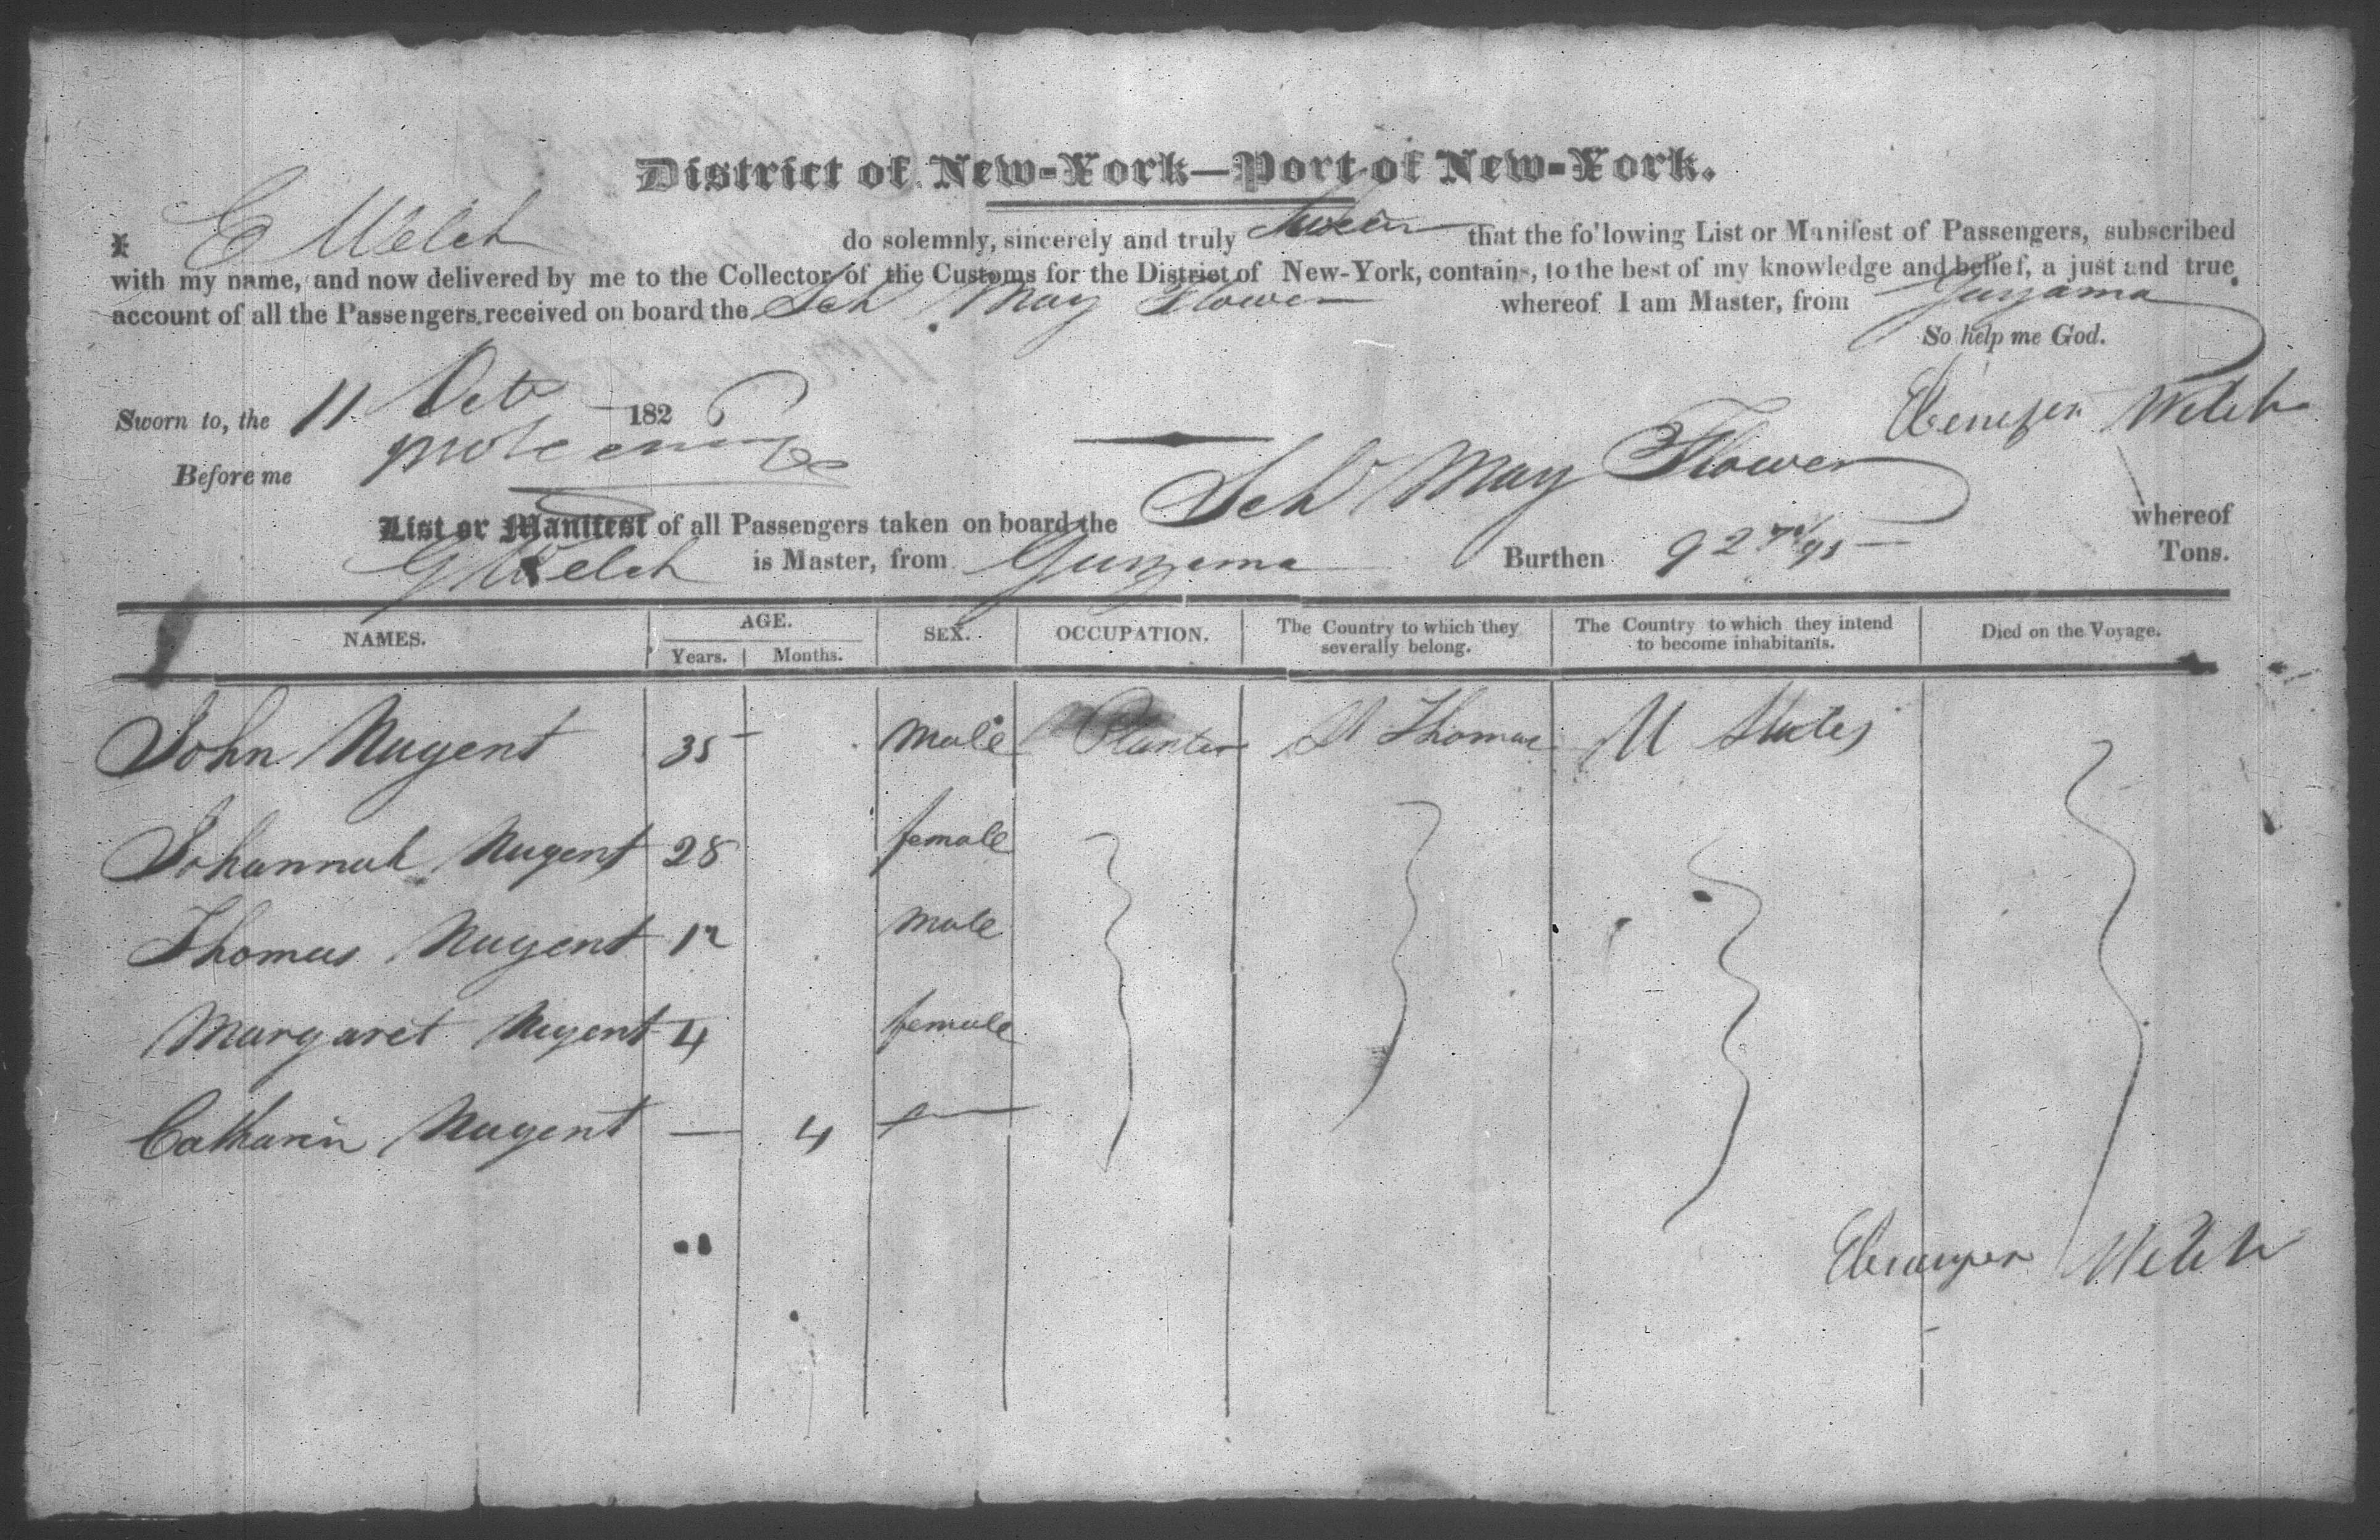 District of New-York—Port of New-York.
I E Welch do solemnly, sincerely and truly swear that the following List or Manifest of Passengers, subscribed
with my name, and now delivered by me to the Collector of the Customs for the District of New-York, contains, to the best of my knowledge and belief, a just and true
account of all the Passengers received on board the Sch May Flower whereof I am Master, from Guyama
So help me God.
Sworn to, the 11 Oct 1826
Ebenezer Welch
Before me
List or Manifest of all Passengers taken on board the Schr May Flower whereof
E Welch is Master, from Guyama Burthen 92 Tons.
NAMES. AGE. Years. Months. SEX. OCCUPATION. The Country to which they severally belong. The Country to which they intend to become inhabitants. Died on the Voyage.
John Nugent 35 male Planter St Thomas U States
Johannah Nugent 28 female
Thomas Nugent 12 male
Margaret Nugent 4 female
Catharin Nugent — 4 f
Ebenezer Welch